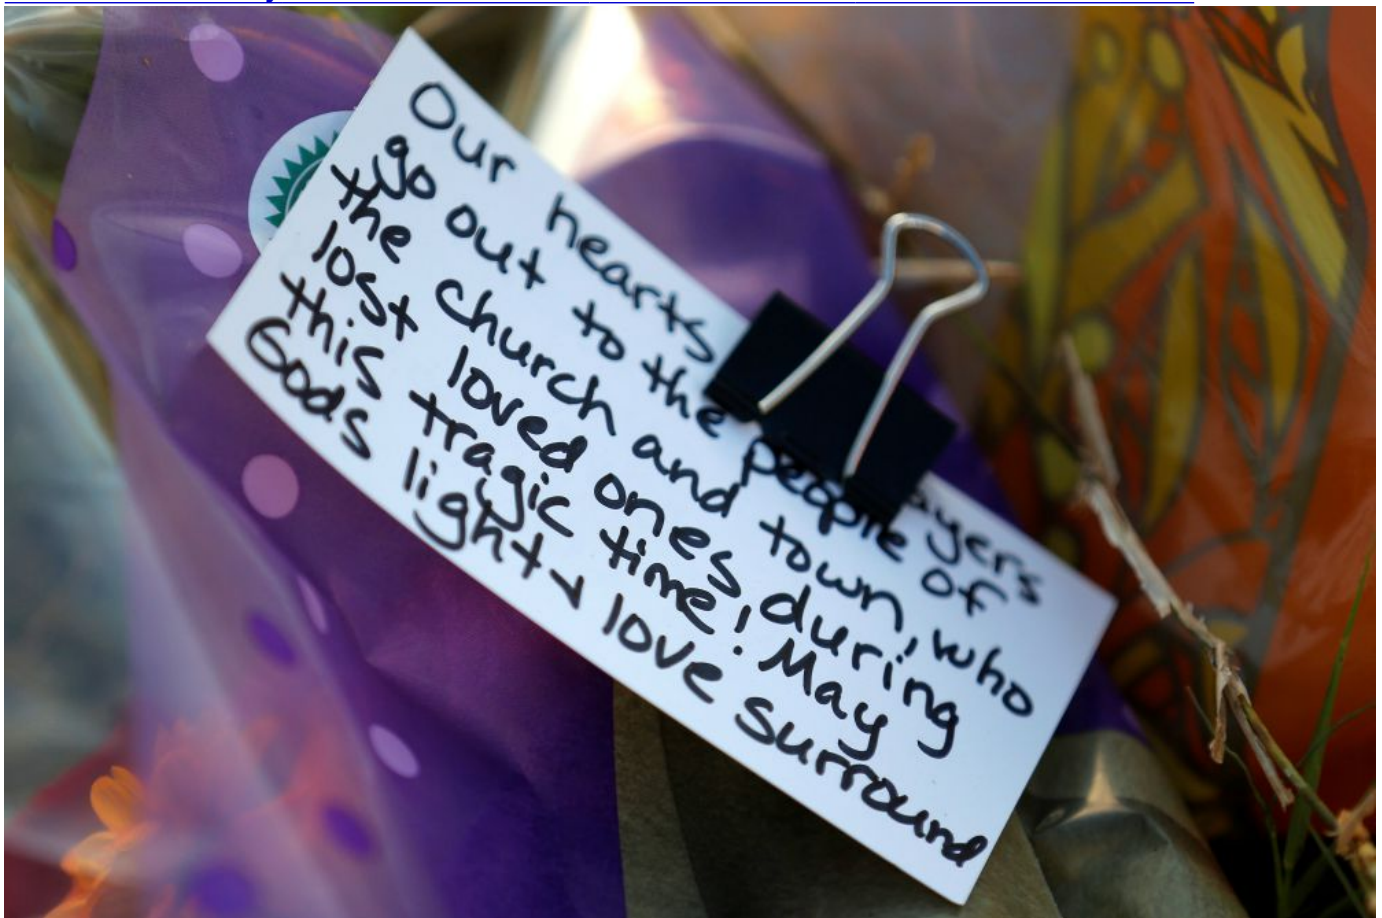 Our hearts ayers
go out to the people of
the church and town, who
lost loved ones, during
this tragic time! May
Gods light + love surround